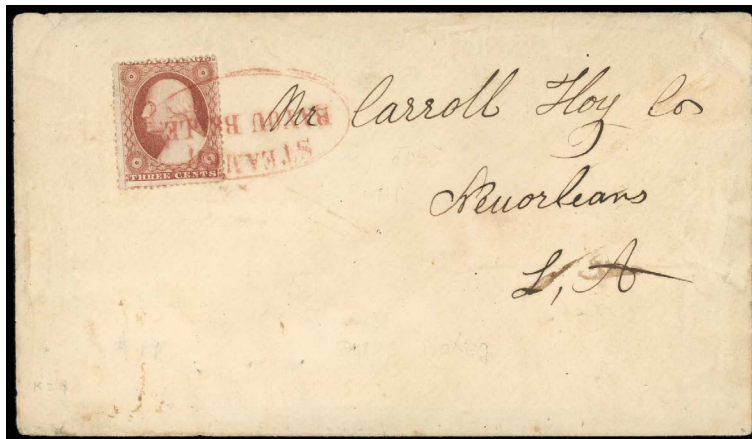 THREE CENTS
STEAMER
BAYOU BELLE
Mr Carroll Hoy Co
Neuorleans
L, A